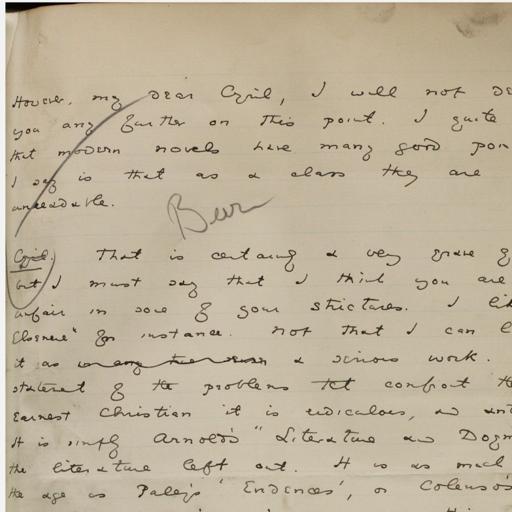 However, my dear Cyril, I will not de
you any further on this point. I quite
that modern novels have many good poi
I say is that as a class they are
unreadable.
Cyril. That is certainly a very grave q
but I must say that I think you are
unfair in some of your strictures. I lik
Elsmere" for instance. Not that I can l
it as a serious work.
statement of the problems that confront th
Earnest Christian it is ridiculous, and ant
It is simply Arnold's "Literature and Dogm
the literature left out. It is as much
the age as Paley's 'Evidences', or Colenso's